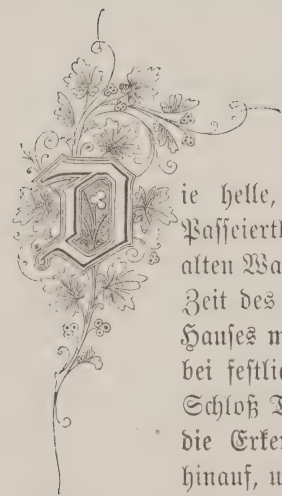 Die helle,
Passeierth
alten Wa
Zeit des
Hauses m
bei festlic
Schloß T
die Erker
hinauf, u